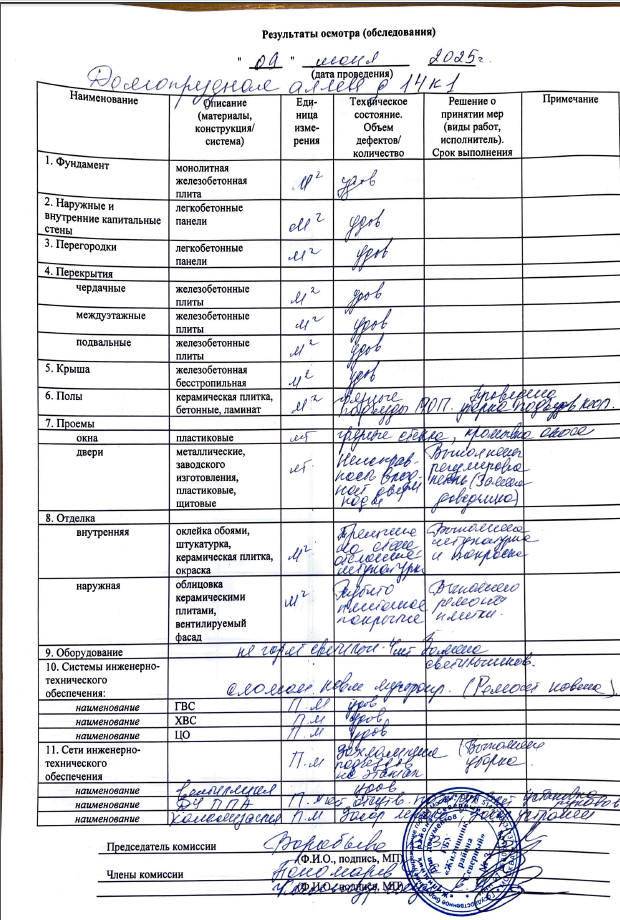 Результаты осмотра (обследования)
" 09 " июня 2025г.
(дата проведения)
Долгопрудная аллея д 14к1
Наименование Описание (материалы, конструкция/ система) Еди- ница изме- рения Техническое состояние. Объем дефектов/ количество Решение о принятии мер (виды работ, исполнитель). Срок выполнения Примечание
1. Фундамент монолитная железобетонная плита м² удов
2. Наружные и внутренние капитальные стены легкобетонные панели м² удов
3. Перегородки легкобетонные панели м² удов
4. Перекрытия
чердачные железобетонные плиты м² удов
междуэтажные железобетонные плиты м² удов
подвальные железобетонные плиты м² удов
5. Крыша железобетонная бесстропильная м² удов
6. Полы керамическая плитка, бетонные, ламинат м² грязные подъезды МОП. Проведена уборка подъездов
7. Проемы
окна пластиковые шт грязные стекла,
двери металлические, заводского изготовления, пластиковые, щитовые шт. Неисправ- ность вход- ной двери Выполнена регулировка (Замена доводчика)
8. Отделка
внутренняя оклейка обоями, штукатурка, керамическая плитка, окраска м² Трещина на стене отслоение штукатурки Выполнена штукатурка и покраска
наружная облицовка керамическими плитами, вентилируемый фасад м² плиточное покрытие Выполнено ремонт плитки.
9. Оборудование не горят светильн. 4шт Замена светильников.
10. Системы инженерно- технического обеспечения: сломан ковш мусоропр. (Ремонт ковша)
наименование ГВС П.м удов
наименование ХВС П.м удов
наименование ЦО П.м удов
11. Сети инженерно- технического обеспечения П.м захламление подъездов на этажах (Выполнена уборка.
наименование Вентиляция удов.
наименование ДУ ППА П.
наименование Канализация П.м
Председатель комиссии Воробьева
(Ф.И.О., подпись, МП)
Члены комиссии Пономарев
(Ф.И.О., подпись, МП)
«Жилищник района Северный»